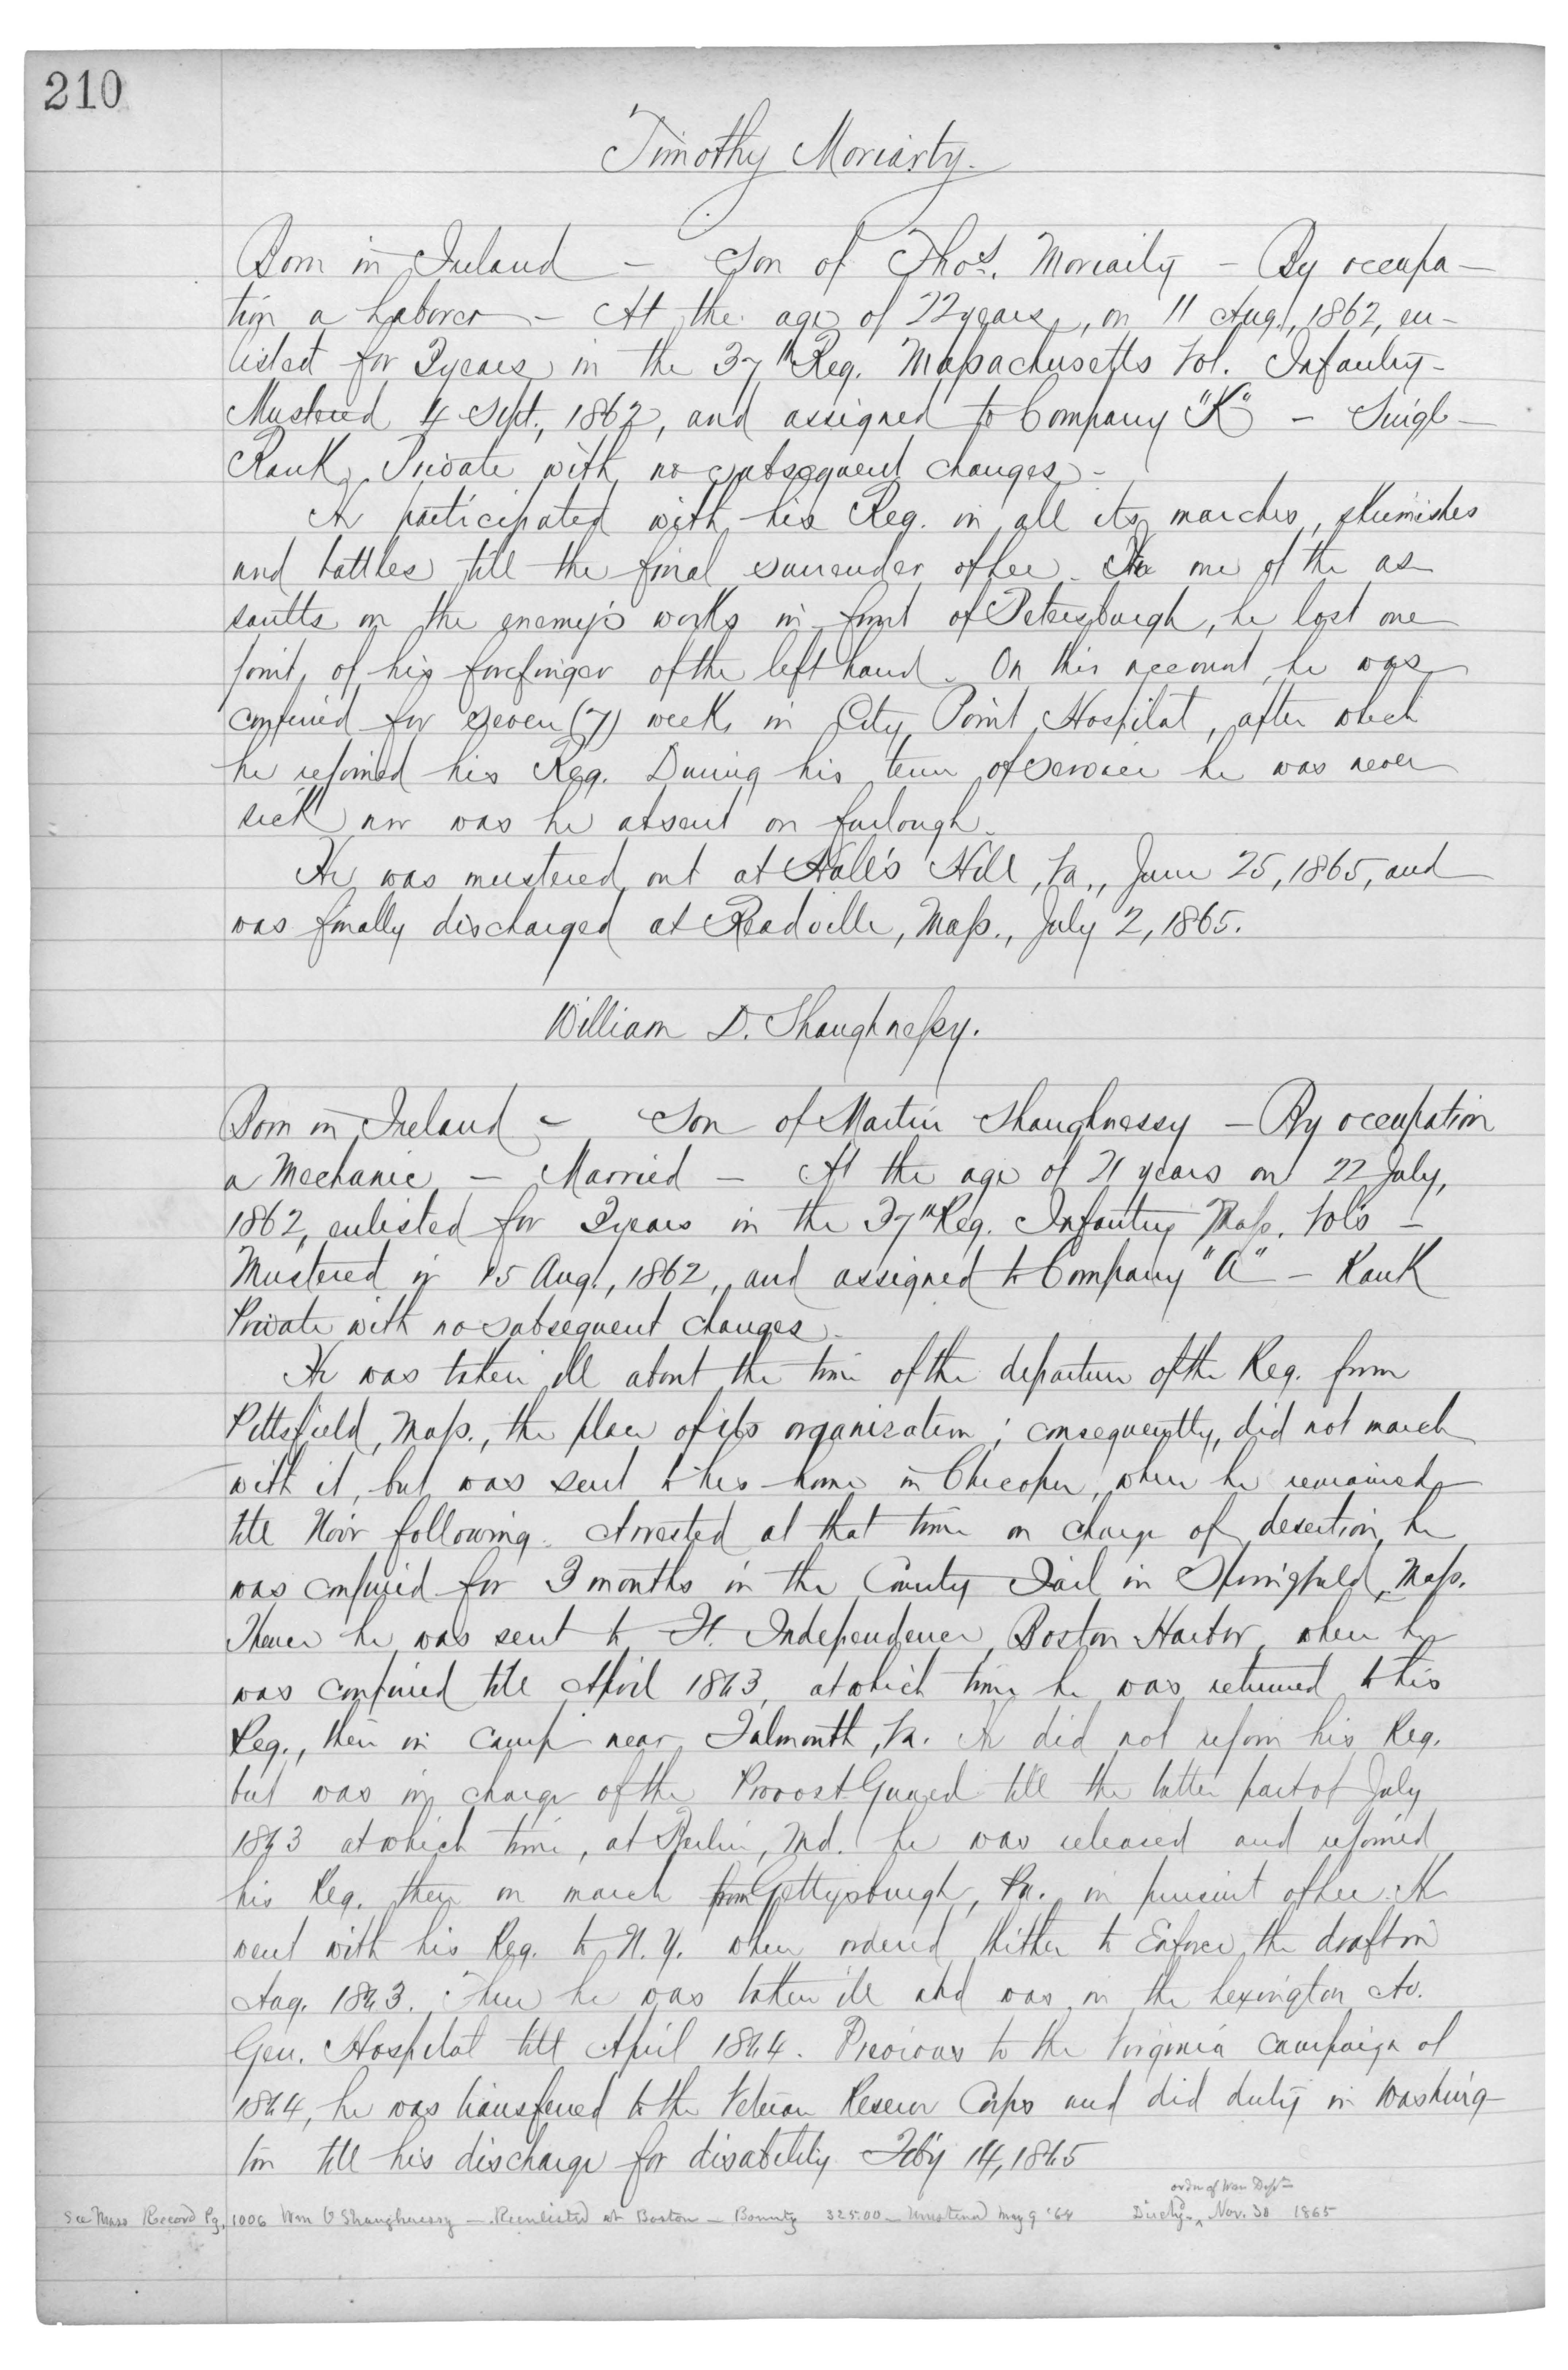 210
Timothy Moriarty.
Born in Ireland – Son of Thos. Moriarty – By occupa-
tion a Laborer – At the age of 22 years, on 11 Aug., 1862, en-
listed for 3 years in the 37th Reg. Massachusetts Vol. Infantry –
Mustered 4 Sept., 1862, and assigned to Company "K" – Single –
Rank Private with no subsequent changes –
He participated with his Reg. in all its marches, skirmishes
and battles till the final surrender of Lee. In one of the as-
saults on the enemy's works in front of Petersburgh, he lost one
joint of his forefinger of the left hand. On this account he was
confined for seven (7) weeks in City Point Hospital, after which
he rejoined his Reg. During his term of service he was never
sick nor was he absent on furlough.
He was mustered out at Hall's Hill, Va., June 25, 1865, and
was finally discharged at Readville, Mass., July 2, 1865.
William D. Shaughnessy.
Born in Ireland – Son of Martin Shaughnessy – By occupation
a Mechanic – Married – At the age of 21 years on 22 July,
1862, enlisted for 3 years in the 37th Reg. Infantry Mass. Vols –
Mustered in 15 Aug., 1862, and assigned to Company "A" – Rank
Private with no subsequent changes –
He was taken ill about the time of the departure of the Reg. from
Pittsfield, Mass., the place of its organization; consequently, did not march
with it, but was sent to his home in Chicopee, where he remained
till Nov. following. Arrested at that time on charge of desertion, he
was confined for 3 months in the County Jail in Springfield, Mass.
Thence he was sent to Ft. Independence, Boston Harbor, where he
was confined till April 1863, at which time he was returned to his
Reg., then in camp near Falmouth, Va. He did not rejoin his Reg.
but was in charge of the Provost Guard till the latter part of July
1863 at which time, at Berlin, Md. he was released and rejoined
his Reg. then on march from Gettysburgh, Pa. in pursuit of Lee. He
went with his Reg. to N.Y. when ordered thither to Enforce the draft in
Aug. 1863. There he was taken ill and was in the Lexington Av.
Gen. Hospital till April 1864. Previous to the Virginia Campaign of
1864, he was transferred to the Veteran Reserve Corps and did duty in Washing-
ton till his discharge for disability Feb'y 14, 1865
order of War Dept
See Mass Record Pg. 1006 Wm O Shaughnessy – Reenlisted at Boston – Bounty 325.00 – Mustered May 9 '64 Disch'g. ^ Nov. 30 1865